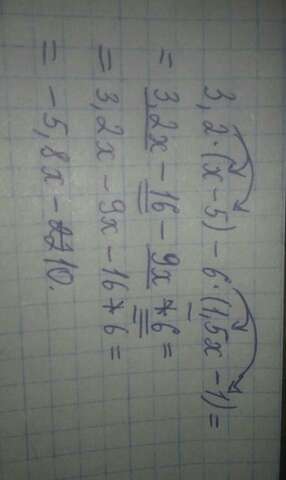 3,2·(x-5)-6·(1,5x-1)=
=3,2x-16-9x+6=
=3,2x-9x-16+6=
=-5,8x-10.